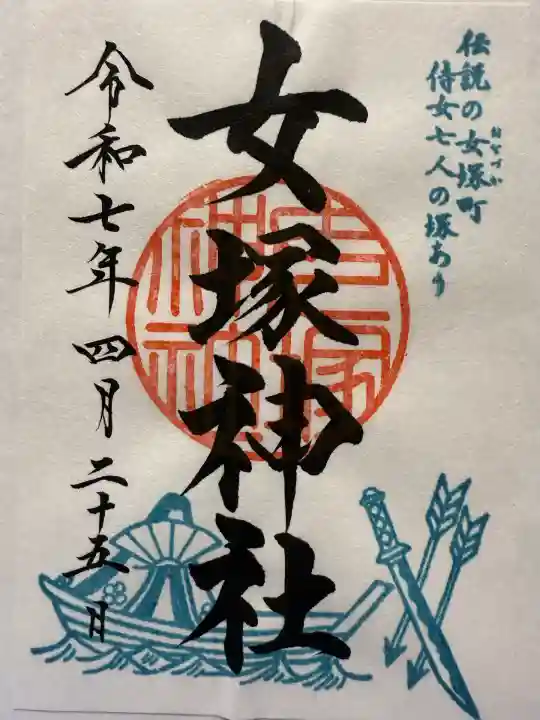 伝説の女塚町
おなづか
侍女七人の塚あり
女塚神社
令和七年 四月 二十五日